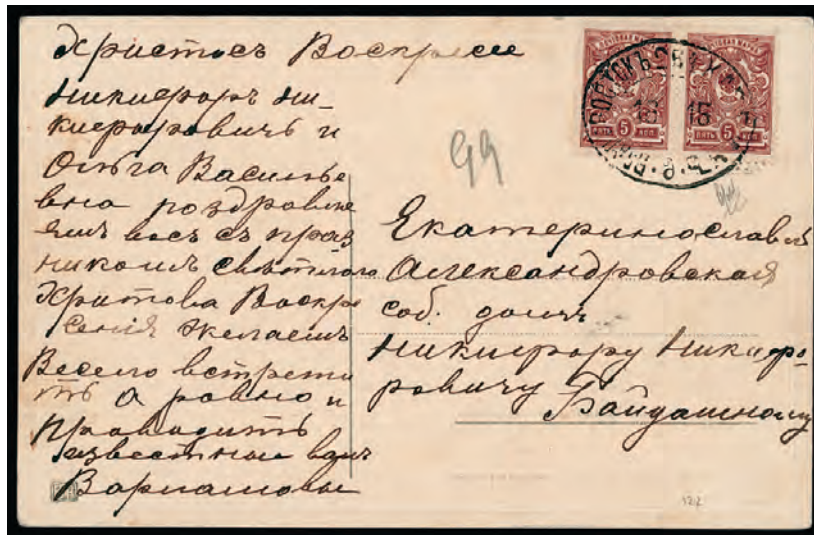 Христосъ Воскресе
Никифоръ Ни-
кифоровичъ и
Ольга Василье
вна поздравля
емъ васъ съ праз
никомъ свѣтлого
Христова Воскре
сенія желаемъ
Весело встрети
ть а ровно и
Проводить
известные вам
Варламовы
99
ПОЧТОВАЯ МАРКА
ПЯТЬ 5 КОП
ПОЧТОВАЯ МАРКА
ПЯТЬ 5 КОП
15
Екатеринославъ
Александровская
соб. домъ
Никифору Никифо-
ровичу Байдашному